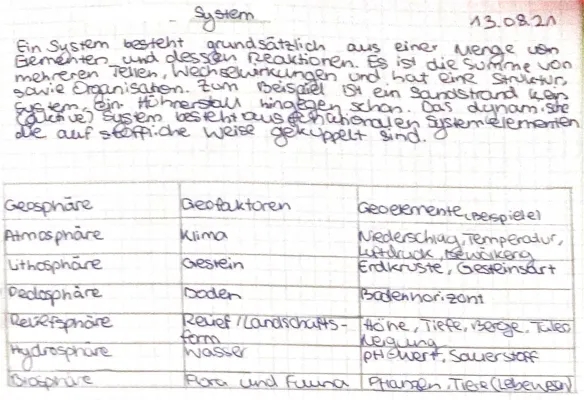 System
13.08.21
Ein System besteht grundsätzlich aus einer Menge von
Elementen und dessen Reaktionen. Es ist die Summe von
mehreren Teilen, Wechselwirkungen und hat eine Struktur,
sowie Organisation. Zum Beispiel ist ein Sandstrand kein
System, ein Hühnerstall hingegen schon. Das dynamische
(aktive) System besteht aus funktionalen Systemelementen
die auf stoffliche Weise gekuppelt sind.
Geosphäre Geofaktoren Geoelemente (Beispiele)
Atmosphäre Klima Niederschlag, Temperatur,
Luftdruck, Bewölkerg
Lithosphäre Gestein Erdkruste, Gesteinsart
Pedosphäre Boden Bodenhorizont
Reliefsphäre Relief/Landschafts- Höhe, Tiefe, Berge, Täler
form Neigung
Hydrosphäre Wasser pH-Wert, Sauerstoff
Biosphäre Flora und Fauna Pflanzen, Tiere (Lebewesen)